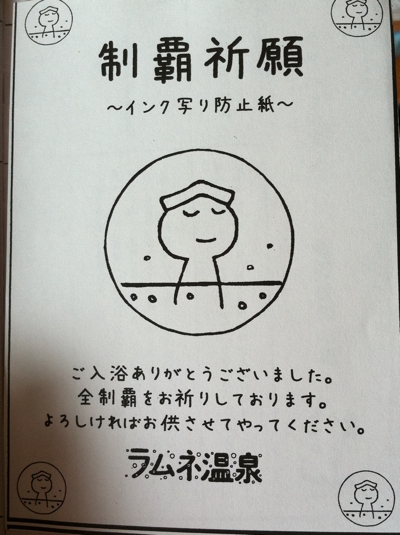 制覇祈願
～インク写り防止紙～
ご入浴ありがとうございました。
全制覇をお祈りしております。
よろしければお供させてやってください。
ラムネ温泉